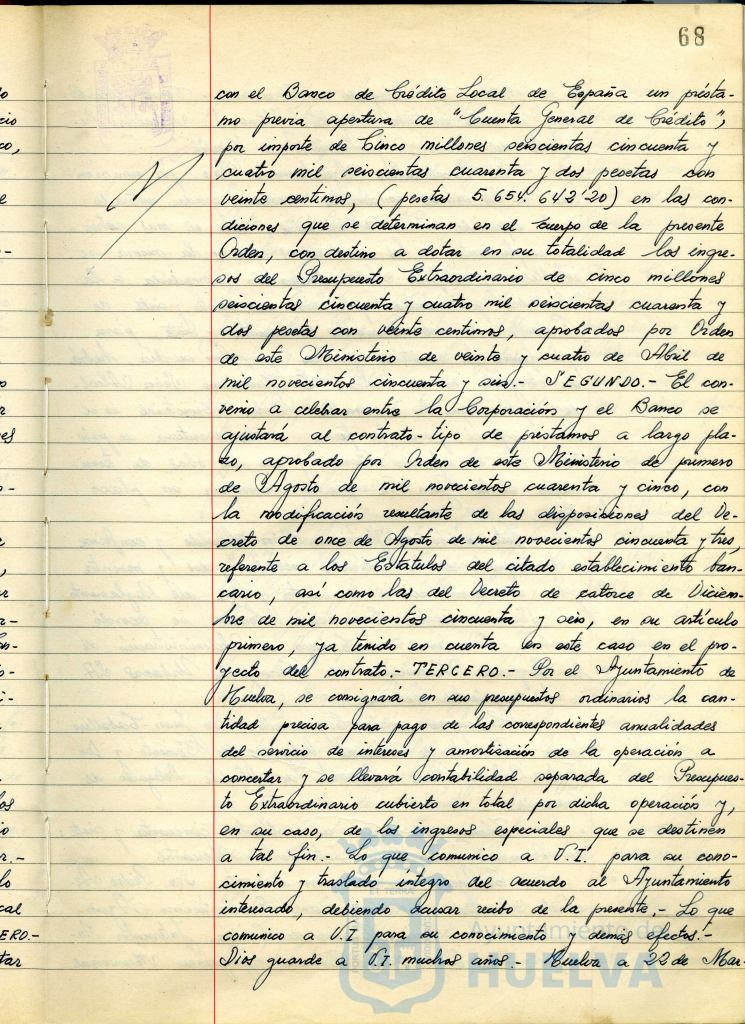 68
con el Banco de Crédito Local de España un présta-
mo previa apertura de "Cuenta General de Crédito",
por importe de Cinco millones seiscientas cincuenta y
cuatro mil seiscientas cuarenta y dos pesetas con
veinte centimos, (pesetas 5.654.642'20) en las con-
diciones que se determinan en el cuerpo de la presente
Orden, con destino a dotar en su totalidad los ingre-
sos del Presupuesto Extraordinario de cinco millones
seiscientas cincuenta y cuatro mil seiscientas cuarenta y
dos pesetas con veinte centimos, aprobados por Orden
de este Ministerio de veinte y cuatro de Abril de
mil novecientos cincuenta y seis.- SEGUNDO.- El con-
venio a celebrar entre la Corporación y el Banco se
ajustará al contrato-tipo de préstamos a largo pla-
zo, aprobado por Orden de este Ministerio de primero
de Agosto de mil novecientos cuarenta y cinco, con
la modificación resultante de las disposiciones del De-
creto de once de Agosto de mil novecientos cincuenta y tres,
referente a los Estatulos del citado establecimiento ban-
cario, así como las del Decreto de catorce de Diciem-
bre de mil novecientos cincuenta y seis, en su artículo
primero, ya tenido en cuenta en este caso en el pro-
yecto del contrato.- TERCERO.- Por el Ayuntamiento de
Huelva, se consignará en sus presupuestos ordinarios la can-
tidad precisa para pago de las correspondientes anualidades
del servicio de intereses y amortización de la operación a
concertar y se llevará contabilidad separada del Presupues-
to Extraordinario cubierto en total por dicha operación y,
en su caso, de los ingresos especiales que se destinen
a tal fin.- Lo que comunico a V.I. para su cono-
cimiento y traslado íntegro del acuerdo al Ayuntamiento
interesado, debiendo acusar recibo de la presente.- Lo que
comunico a V.I para su conocimiento y demás efectos.-
Dios guarde a V.I. muchos años.- Huelva a 22 de Mar-
Ayuntamiento de
HUELVA